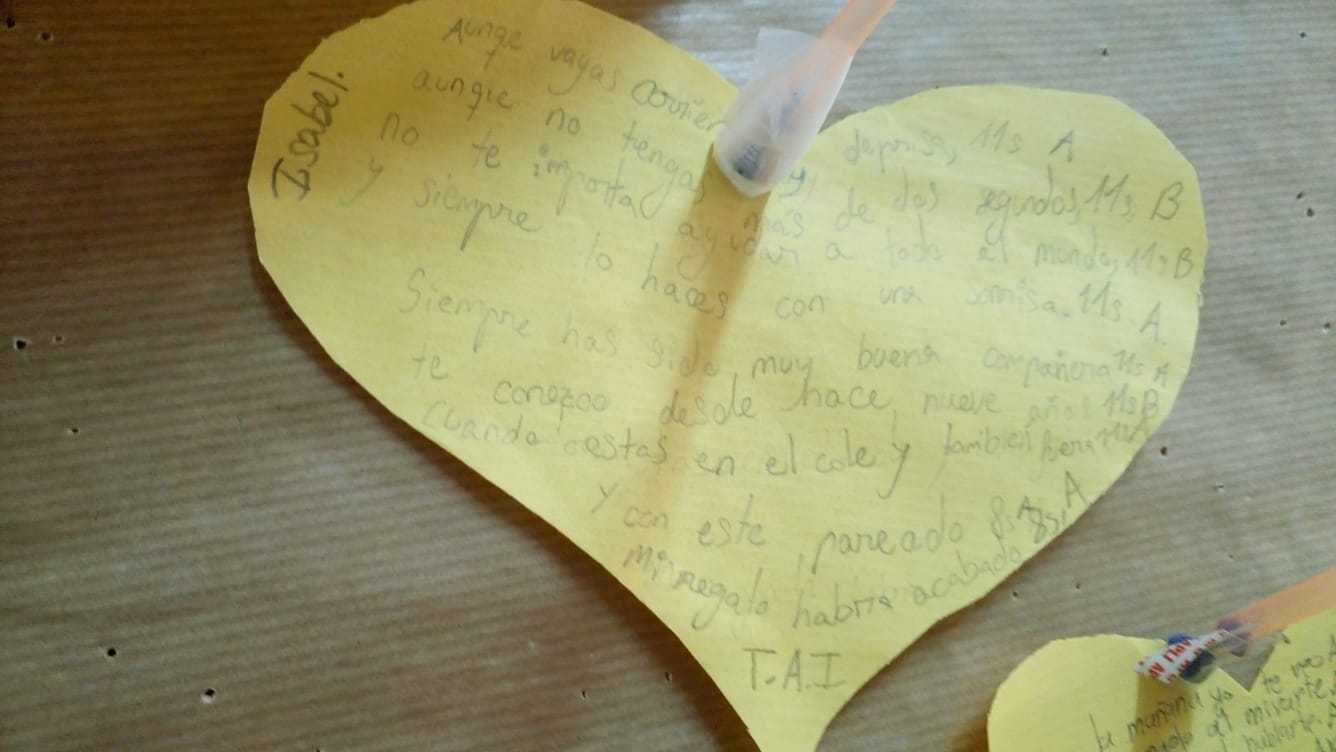 Isabel.
Aunqe vagas corrien deprisa, 11s A
aunque no tengas más de dos segundos, 11s, B
no te importa ayudar a todo el mundo, 11s B
y siempre lo haces con una sonrisa. 11s. A.
Siempre has sido muy buena compañera 11s A
te conozco desde hace nueve años 11s B
Cuando estas en el cole y también fuera 11s A
y con este pareado 8s A
mi regalo habría acabado 8s, A
T.A.I
la mañana yo te